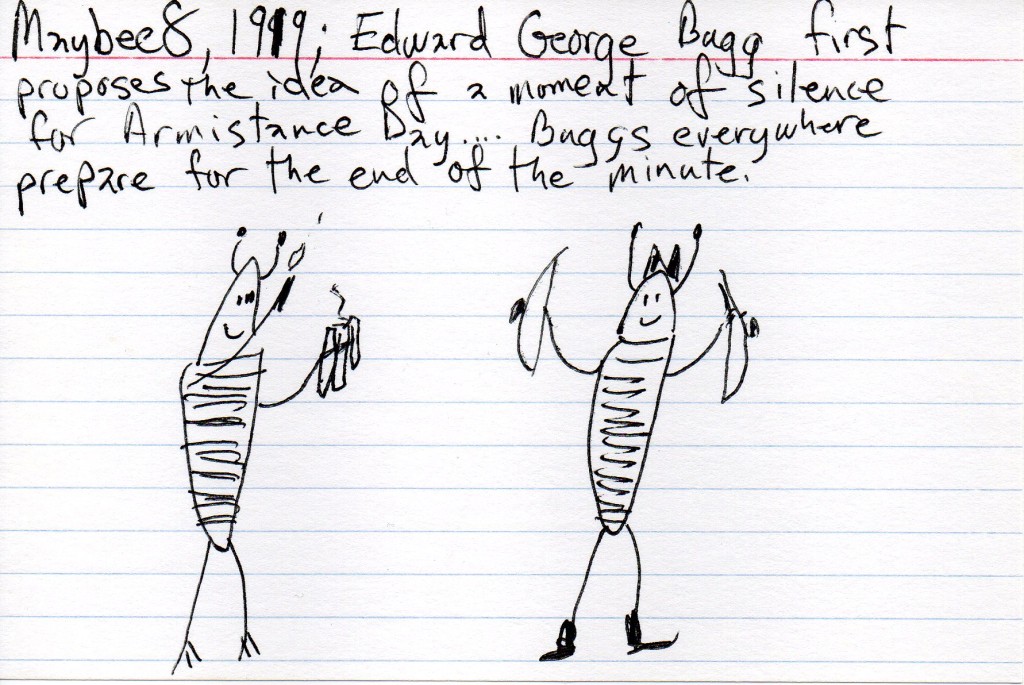 Maybee8, 1919; Edward George Bugg first
proposes the idea of a moment of silence
for Armistance Day.... Buggs everywhere
prepare for the end of the minute.